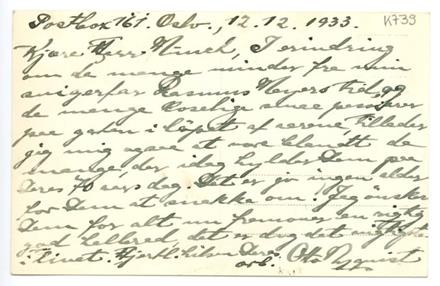 Postbox 761. Oslo., 12.12.1933. K739
Kjære Herr Munch, I erindring
om de mange minder fra min
svigerfar Rasmus Meyers tid, og
de mange koselige smaa
paa gaten i löpet af aarene, tillader
jeg mig ogsaa at være blandt de
mange, der idag hylder Dem paa
Deres 70 aars dag. Det er jo ingen alder
for Dem at snakke om. Jeg ønsker
Dem for alt nu fremover en rigtig
god helbred, det er dog det vigtigste
i livet. Hjertl. hilsen Deres
erb. Otto